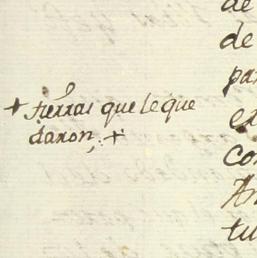 + tierras que le que
daron, +
de
de
par
con
tu